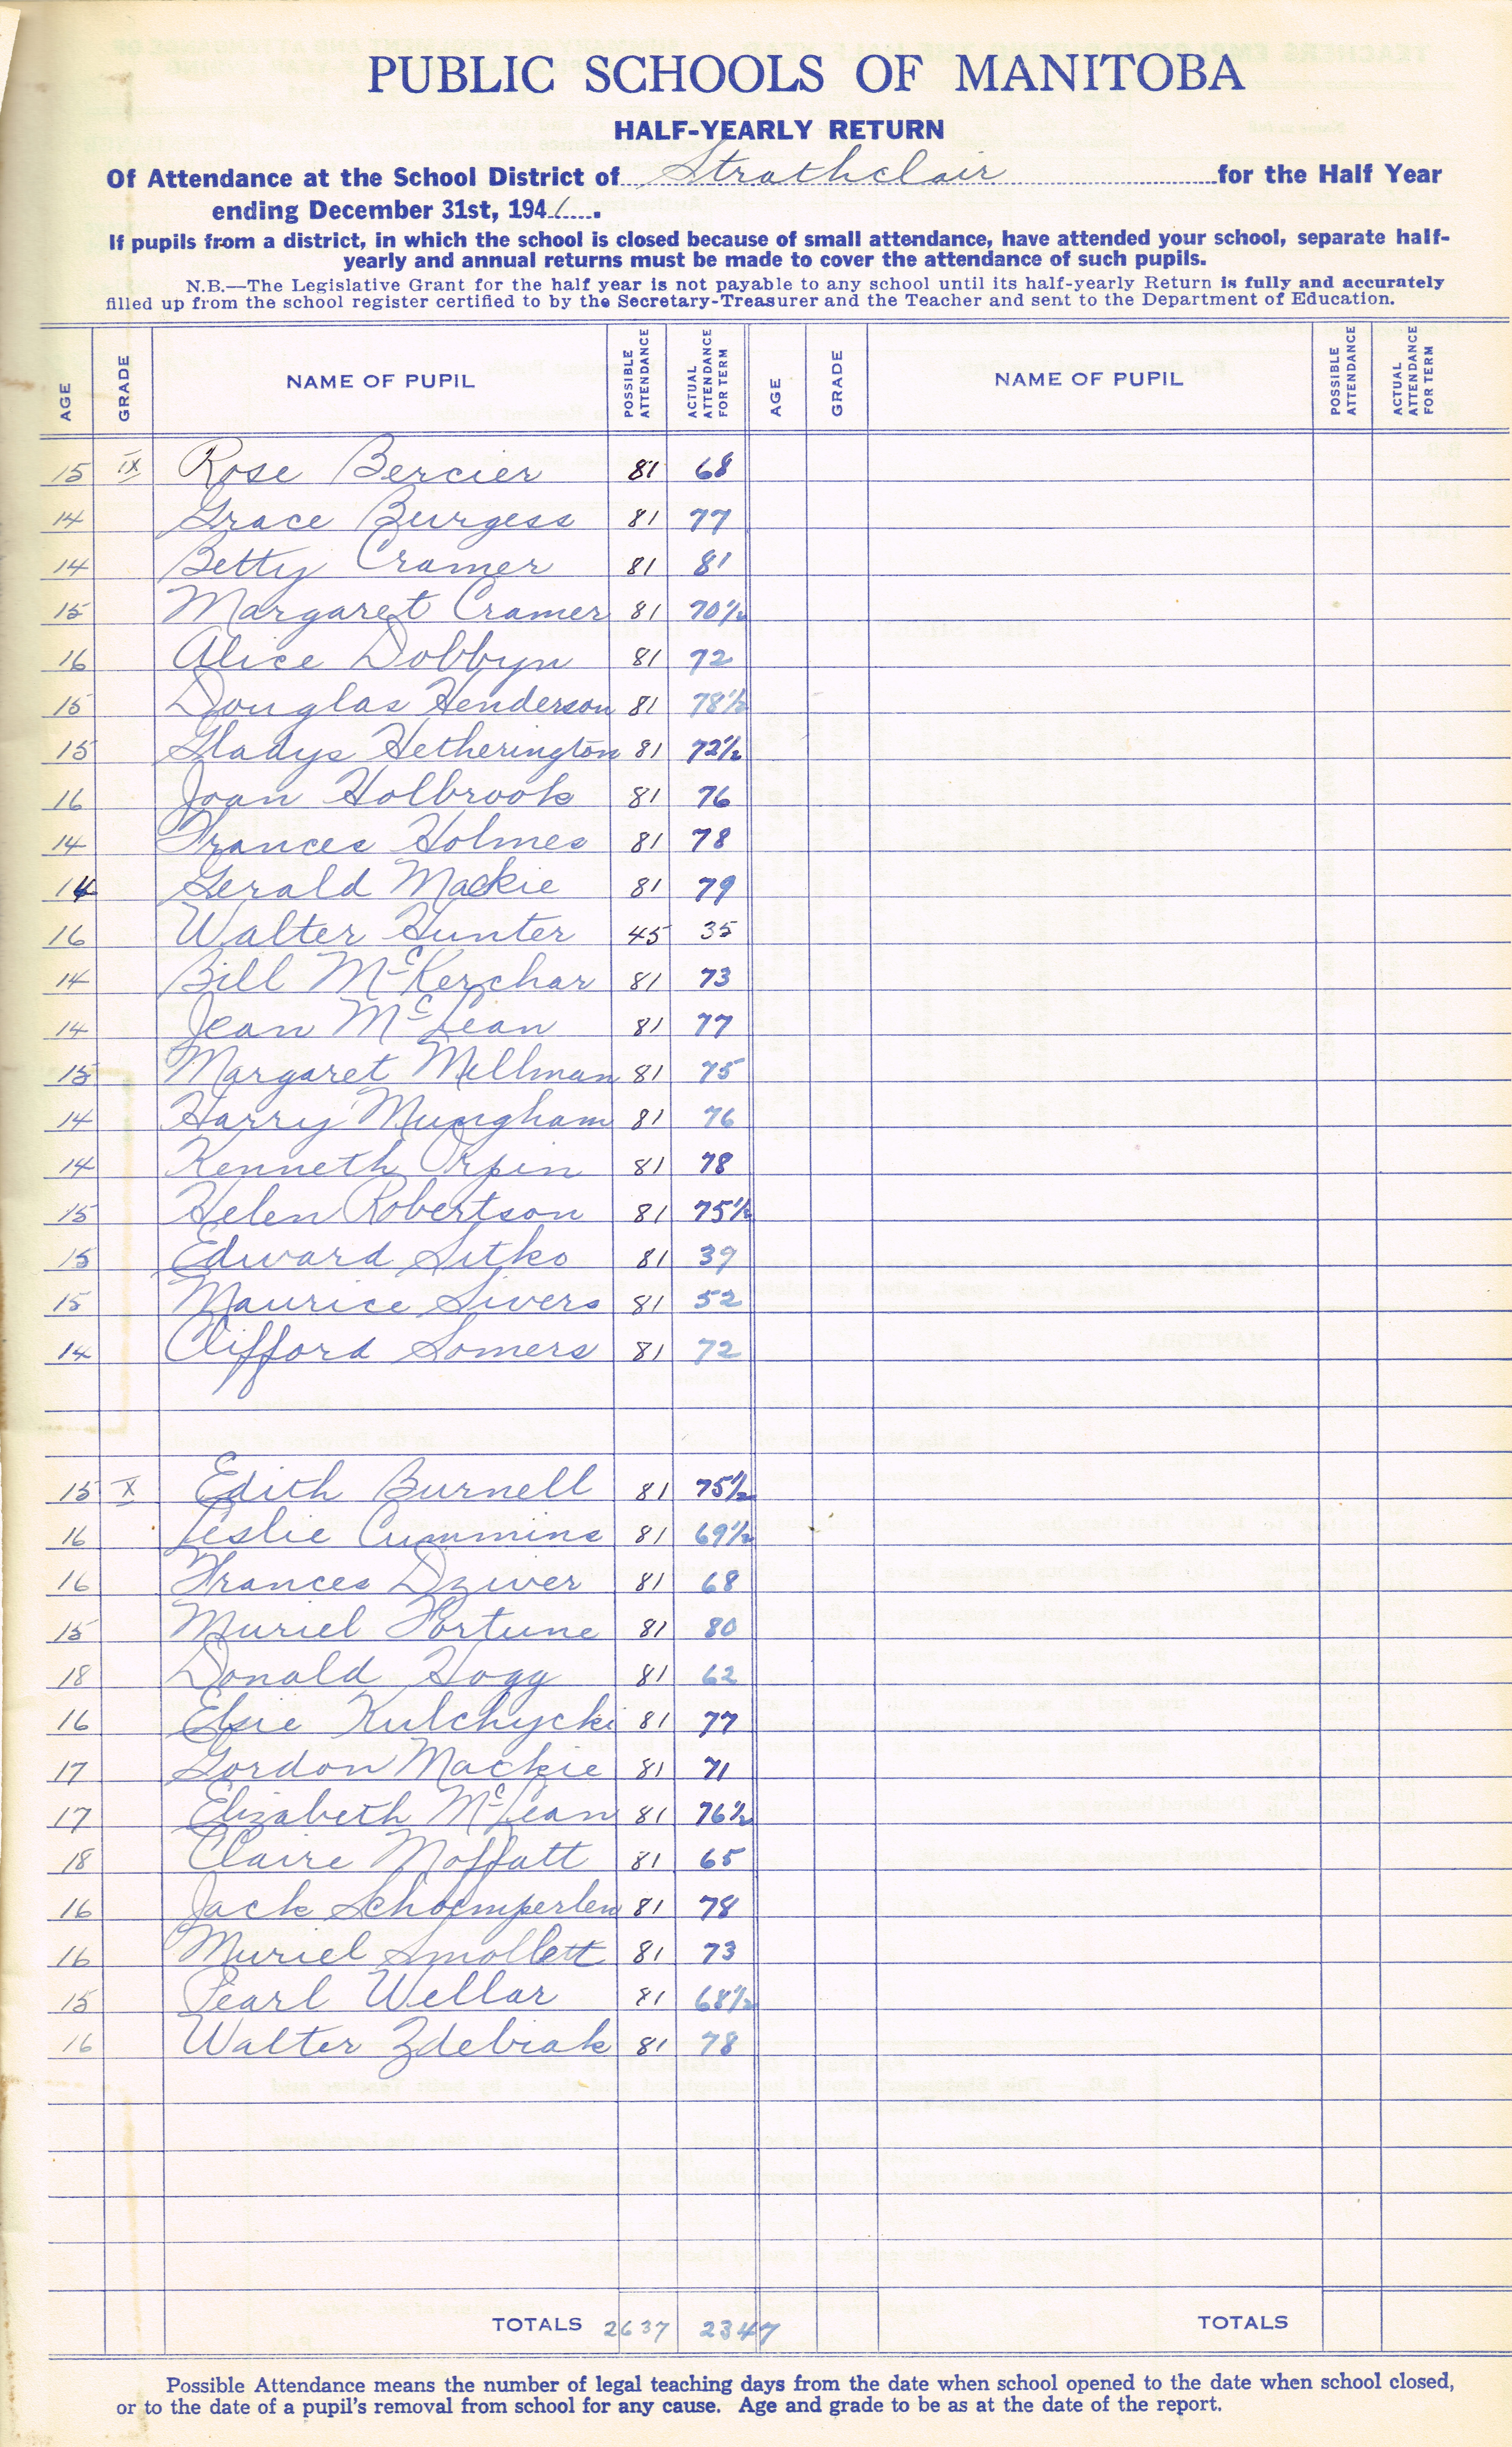 PUBLIC SCHOOLS OF MANITOBA
HALF-YEARLY RETURN
Of Attendance at the School District of Strathclair for the Half Year
ending December 31st, 1941.
If pupils from a district, in which the school is closed because of small attendance, have attended your school, separate half-
yearly and annual returns must be made to cover the attendance of such pupils.
N.B.—The Legislative Grant for the half year is not payable to any school until its half-yearly Return is fully and accurately
filled up from the school register certified to by the Secretary-Treasurer and the Teacher and sent to the Department of Education.
AGE GRADE NAME OF PUPIL POSSIBLE ATTENDANCE ACTUAL ATTENDANCE FOR TERM AGE GRADE NAME OF PUPIL POSSIBLE ATTENDANCE ACTUAL ATTENDANCE FOR TERM
15 IX Rose Bercier 81 68
14 Grace Burgess 81 77
14 Betty Cramer 81 81
15 Margaret Cramer 81 70½
16 Alice Dobbyn 81 72
15 Douglas Henderson 81 78½
15 Gladys Hetherington 81 72½
16 Joan Holbrook 81 76
14 Frances Holmes 81 78
14 Gerald Mackie 81 79
16 Walter Hunter 45 35
14 Bill McKerchar 81 73
14 Jean McLean 81 77
15 Margaret Millman 81 75
14 Harry Mungham 81 76
14 Kenneth Orpin 81 78
15 Helen Robertson 81 75½
15 Edward Sitko 81 39
15 Maurice Sivers 81 52
14 Clifford Somers 81 72
15 X Edith Burnell 81 75½
16 Leslie Cummins 81 69½
16 Frances Dziver 81 68
15 Muriel Fortune 81 80
18 Donald Hogg 81 62
16 Elsie Kulchycki 81 77
17 Gordon Mackie 81 71
17 Elizabeth McLean 81 76½
18 Claire Moffatt 81 65
16 Jack Schoemperlen 81 78
16 Muriel Smollett 81 73
15 Pearl Wellar 81 68½
16 Walter Zdebiak 81 78
TOTALS 2637 2347 TOTALS
Possible Attendance means the number of legal teaching days from the date when school opened to the date when school closed,
or to the date of a pupil's removal from school for any cause. Age and grade to be as at the date of the report.